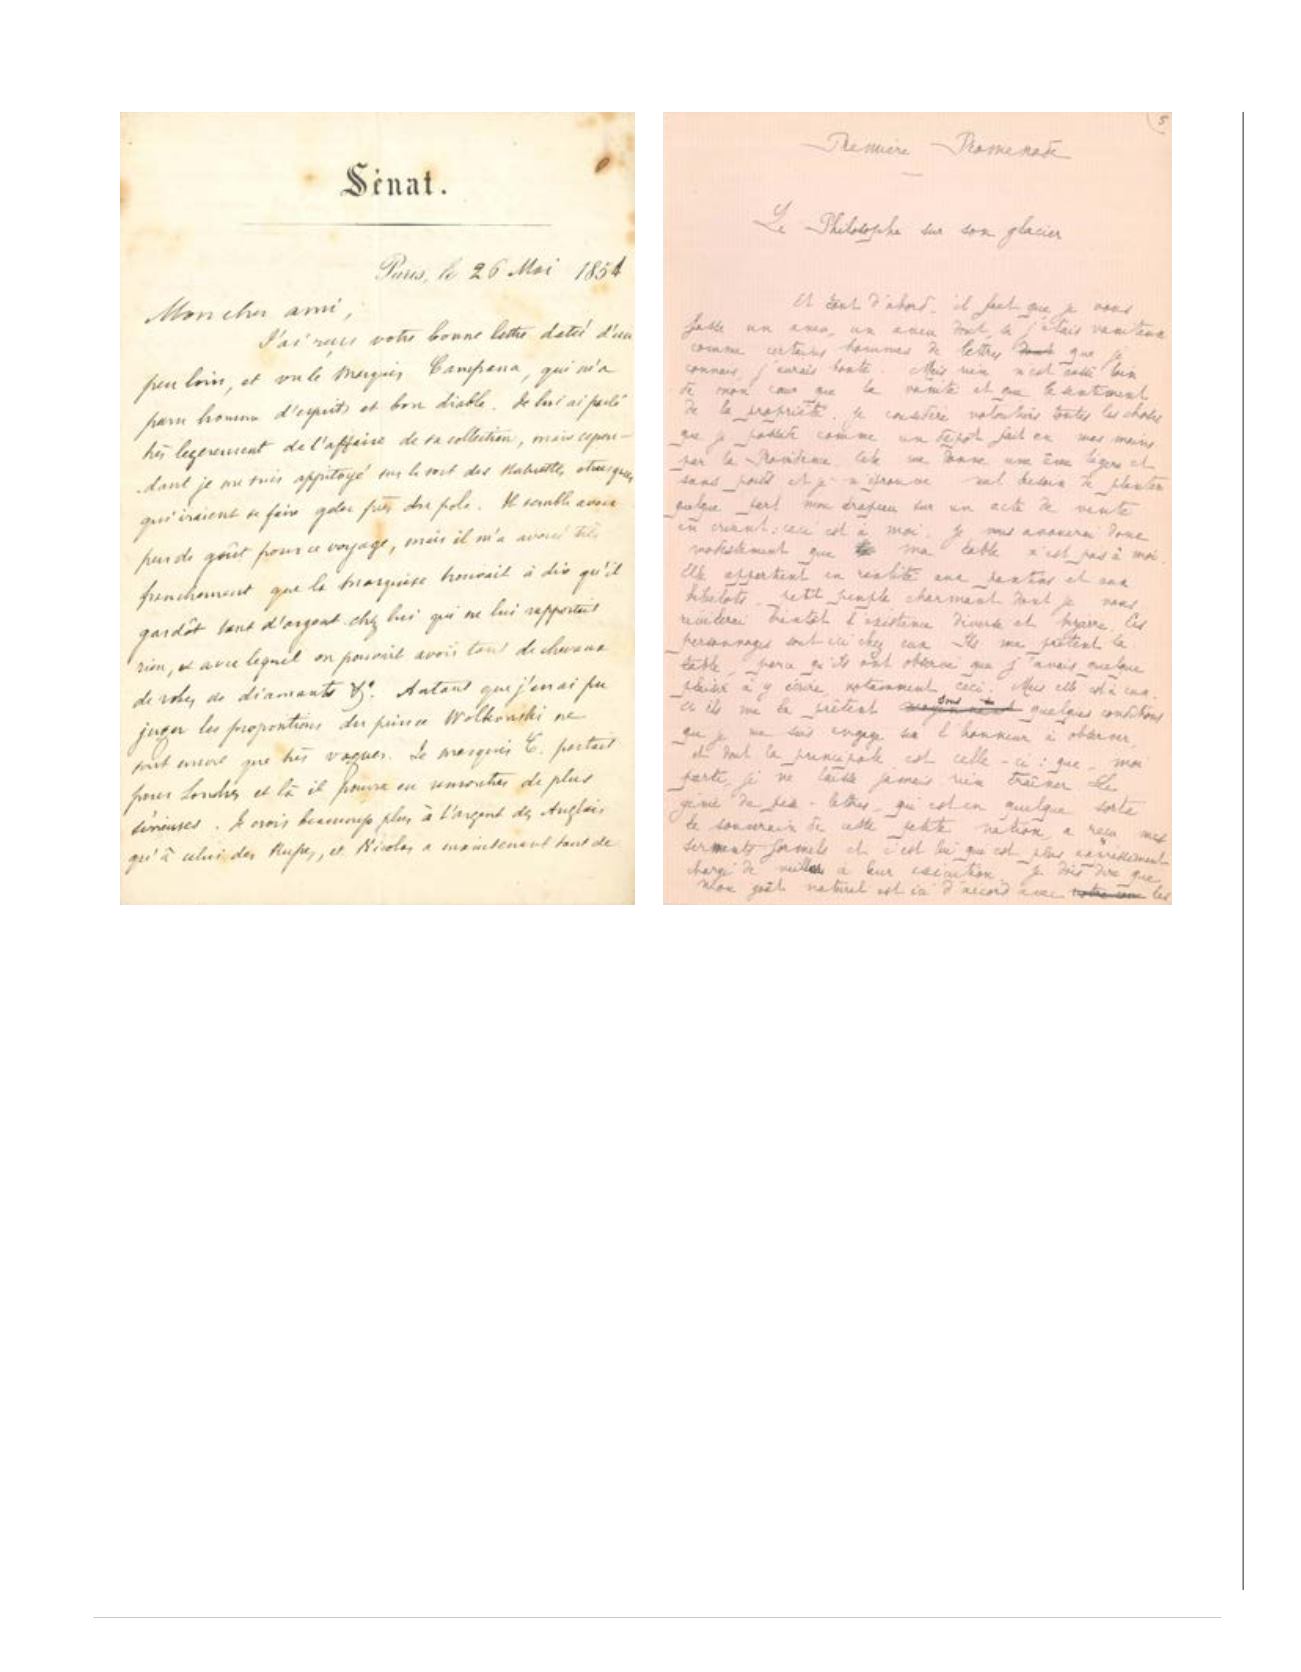 Sénat.
Paris, le 26 Mai 1854
Mon cher ami,
J'ai reçu votre bonne lettre datée d'un
peu loin, et vu le Marquis Campana, qui m'a
paru homme d'esprit et bon diable. Je lui ai parlé
très légèrement de l'affaire de sa collection, mais cepen-
dant je me suis appitoyé sur le sort des statuettes étrusques
qui iraient se faire geler près du pole. Il semble avoir
peu de goût pour ce voyage, mais il m'a avoué très
franchement que la Marquise trouvait à dire qu'il
gardât tant d'argent chez lui qui ne lui rapportait
rien, et avec lequel on pouvait avoir tant de chevaux
de robes de diamants &c. Autant que j'en ai pu
juger les propositions du prince Wolkonski ne
sont encore que très vagues. Le marquis C. partait
pour Londres et là il pourra en rencontrer de plus
sérieuses. Je crois beaucoup plus à l'argent des Anglais
qu'à celui des Russes, et Nicolas a maintenant tant de
5
Première Promenade
Le Philosophe sur son glacier
Et tout d'abord, il faut que je vous
fasse un aveu, un aveu dont, si j'étais vaniteux
comme certains hommes de lettres que je
connais, j'aurais honte. Mais rien n'est aussi loin
de mon cœur que la vanité et que le sentiment
de la propriété. Je considère volontiers toutes les choses
que je possède comme un dépôt fait en mes mains
par la Providence. Cela me donne une âme légère et
sans poids et je n'éprouve nul besoin de planter
quelque part mon drapeau sur un acte de vente
en criant : ceci est à moi. Je vous avouerai donc
modestement que ma table n'est pas à moi.
Elle appartient en réalité aux pantins et aux
bibelots, petit peuple charmant dont je vous
raconterai bientôt l'existence diverse et bizarre. Ces
personnages sont ici chez eux. Ils me prêtent la
table, parce qu'ils ont observé que j'avais quelque
plaisir à y écrire, notamment ceci. Mais elle est à eux.
Et ils me la prêtent sous quelques conditions
que je me suis engagé sur l'honneur à observer,
et dont la principale est celle-ci : que, moi
parti, je ne laisse jamais rien traîner. Le
génie de , qui est en quelque sorte
le souverain de cette petite nation, a reçu mes
serments formels et c'est lui qui est plus expressément
chargé de veiller à leur exécution. Je dois dire que
mon goût naturel est ici d'accord avec les